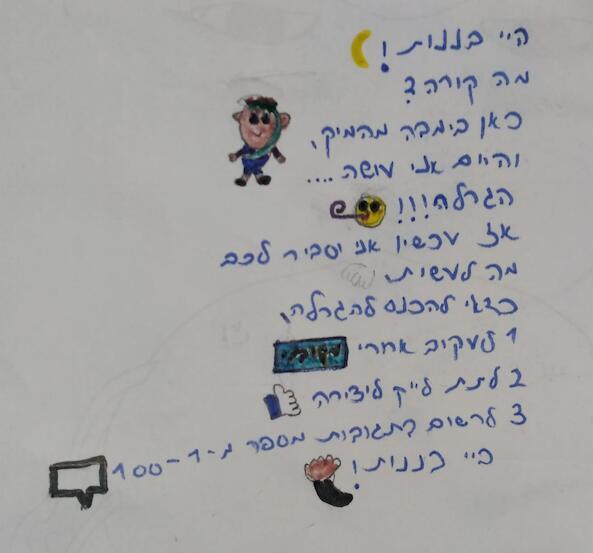 היי בננות!
מה קורה?
כאן בימבה מהמיק,
והיום אני עושה....
הגרלה!!!
אז עכשיו אני יסביר לכם
מה לעשית.
כדאי להכנס להגרלה,
1 לעקוב אחרי
2 לתת לייק ליצירה
3 לרשום בתגובות מספר מ-1-100
ביי בננות!